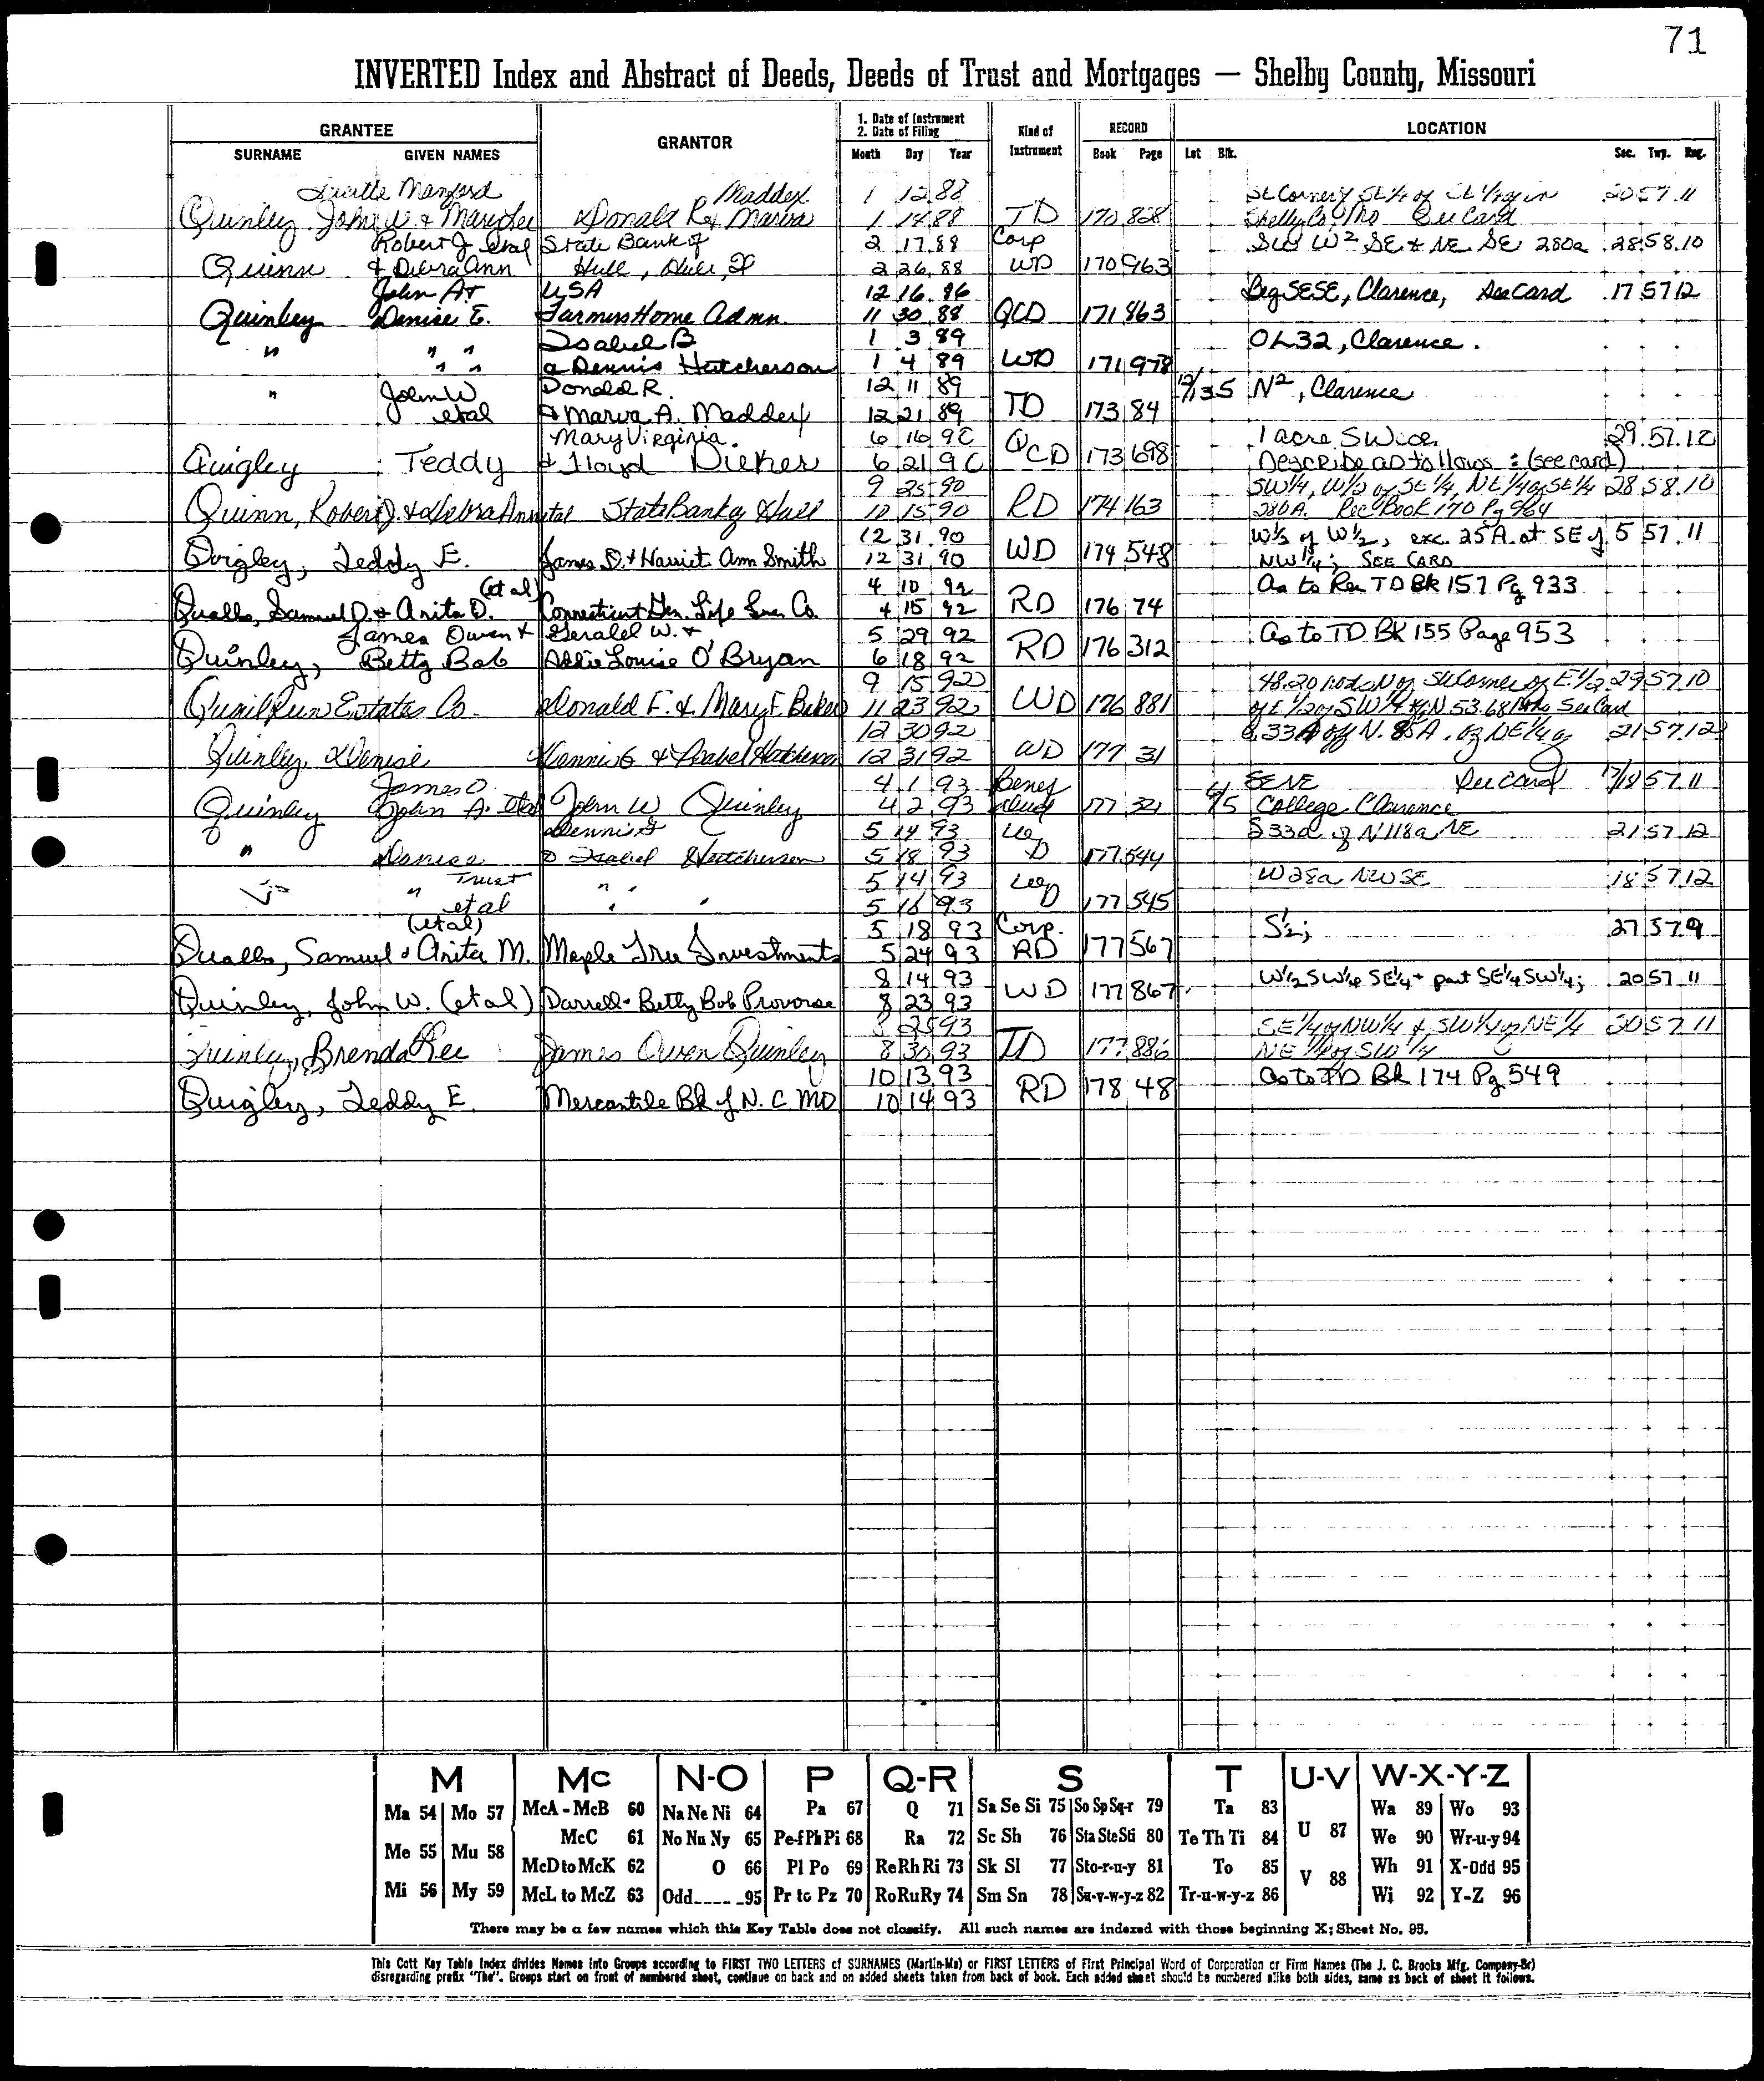 71
INVERTED Index and Abstract of Deeds, Deeds of Trust and Mortgages — Shelby County, Missouri
GRANTEE GRANTOR 1. Date of Instrument 2. Date of Filing Kind of Instrument RECORD LOCATION
SURNAME GIVEN NAMES Month Day Year Book Page Lot Blk. Sec. Twp. Rng.
Maddox 1 12 88 20 57 11
Quinley John W. & Mary Lee Donald R & Marva 1 14 88 TD 170 828 Shelby Co, Mo See Card
Robert J etal State Bank of 2 17 88 Corp W² SE & NE SE 280a 28 58 10
Quinn & Debra Ann Hull, 2 26 88 WD 170 963
John A & USA 12 16 86 Beg SESE, Clarence, See Card 17 57 12
Quinley Denise E. Farmers Home Admn. 11 30 88 QCD 171 863
" " " Isabel B 1 3 89 OL32, Clarence.
" " & Dennis Hutcherson 1 4 89 WD 171 978
" John W Donald R. 12 11 89 N², Clarence
etal & Marva A. Maddex 12 21 89 TD 173 84
Mary Virginia 6 16 90 1 acre SW cor 29 57 12
Quigley Teddy & Lloyd Dieker 6 21 90 QCD 173 698 Describe as follows: (see card)
9 25 90 SW¼, W½ of SE¼, NE¼ of SE¼ 28 58 10
Quinn, Robert J. & Debra Ann etal State Bank of Hull 10 15 90 RD 174 163 280A. Rec Book 170 Pg 964
12 31 90 W½ of W½, exc. 25 A. at SE of 5 57 11
Quigley, Teddy E. James D. & Harriet Ann Smith 12 31 90 WD 174 548 NW¼; SEE CARD
(et al) 4 10 92 As to Rec TD BK 157 Pg 933
Qualls, Samuel D. & Anita D. Connecticut Gen. Life Ins. Co. 4 15 92 RD 176 74
James Owen & Gerald W. & 5 29 92 As to TD BK 155 Page 953
Quinley, Betty Bob Addie Louise O'Bryan 6 18 92 RD 176 312
9 15 92 48.20 rods N of SW Corner of E½ 29 57 10
Quail Run Estates Co. Donald F. & Mary F. Baker 11 23 92 WD 176 881 of E½ of SW¼ N 53.68 See Card
12 30 92 S 33 A off N. 85 A. of NE¼ of 21 57 12
Quinley, Denise Dennis G & Isabel Hutcherson 12 31 92 WD 177 31
James O. 4 1 93 Benef SENE See card 17/18 57 11
Quinley John A. etal John W Quinley 4 2 93 deed 177 321 College Clarence
Dennis G 5 14 93 S 33a of N118a NE 21 57 12
" Denise & Isabel Hutcherson 5 18 93 WD 177 544
" Trust " " 5 14 93 WD W28a NWSE 18 57 12
etal " " 5 18 93 177 545
(etal) 5 18 93 Corp. S½; 27 57 9
Qualls, Samuel & Anita M. Maple Tree Investments 5 24 93 RD 177 567
8 14 93 W½ SW¼ SE¼ + part SE¼ SW¼; 20 57 11
Quinley, John W. (et al) Darrell & Betty Bob Provorse 8 23 93 WD 177 867
8 25 93 SE¼ of NW¼ & SW¼ of NE¼ 30 57 11
Quinley, Brenda Lee James Owen Quinley 8 30 93 TD 177 886 NE¼ of SW¼
10 13 93 As to TD Bk 174 Pg 549
Quigley, Teddy E. Mercantile Bk of N. C. MO 10 14 93 RD 178 48
M Mc N-O P Q-R S T U-V W-X-Y-Z
Ma 54 Mo 57 McA - McB 60 Na Ne Ni 64 Pa 67 Q 71 Sa Se Si 75 So Sp Sq-r 79 Ta 83 U 87 Wa 89 Wo 93
Me 55 Mu 58 McC 61 No Nu Ny 65 Pe-f Ph Pi 68 Ra 72 Sc Sh 76 Sta Ste Sti 80 Te Th Ti 84 We 90 Wr-u-y 94
McD to McK 62 O 66 Pl Po 69 Re Rh Ri 73 Sk Sl 77 Sto-r-u-y 81 To 85 V 88 Wh 91 X-Odd 95
Mi 56 My 59 McL to McZ 63 Odd____95 Pr to Pz 70 Ro Ru Ry 74 Sm Sn 78 Su-v-w-y-z 82 Tr-u-w-y-z 86 Wi 92 Y-Z 96
There may be a few names which this Key Table does not classify. All such names are indexed with those beginning X; Sheet No. 95.
This Cott Key Table Index divides Names into Groups according to FIRST TWO LETTERS of SURNAMES (Martin-Ma) or FIRST LETTERS of First Principal Word of Corporation or Firm Names (The J. C. Brooks Mfg. Company-Br)
disregarding prefix "The". Groups start on front of numbered sheet, continue on back and on added sheets taken from back of book. Each added sheet should be numbered alike both sides, same as back of sheet it follows.